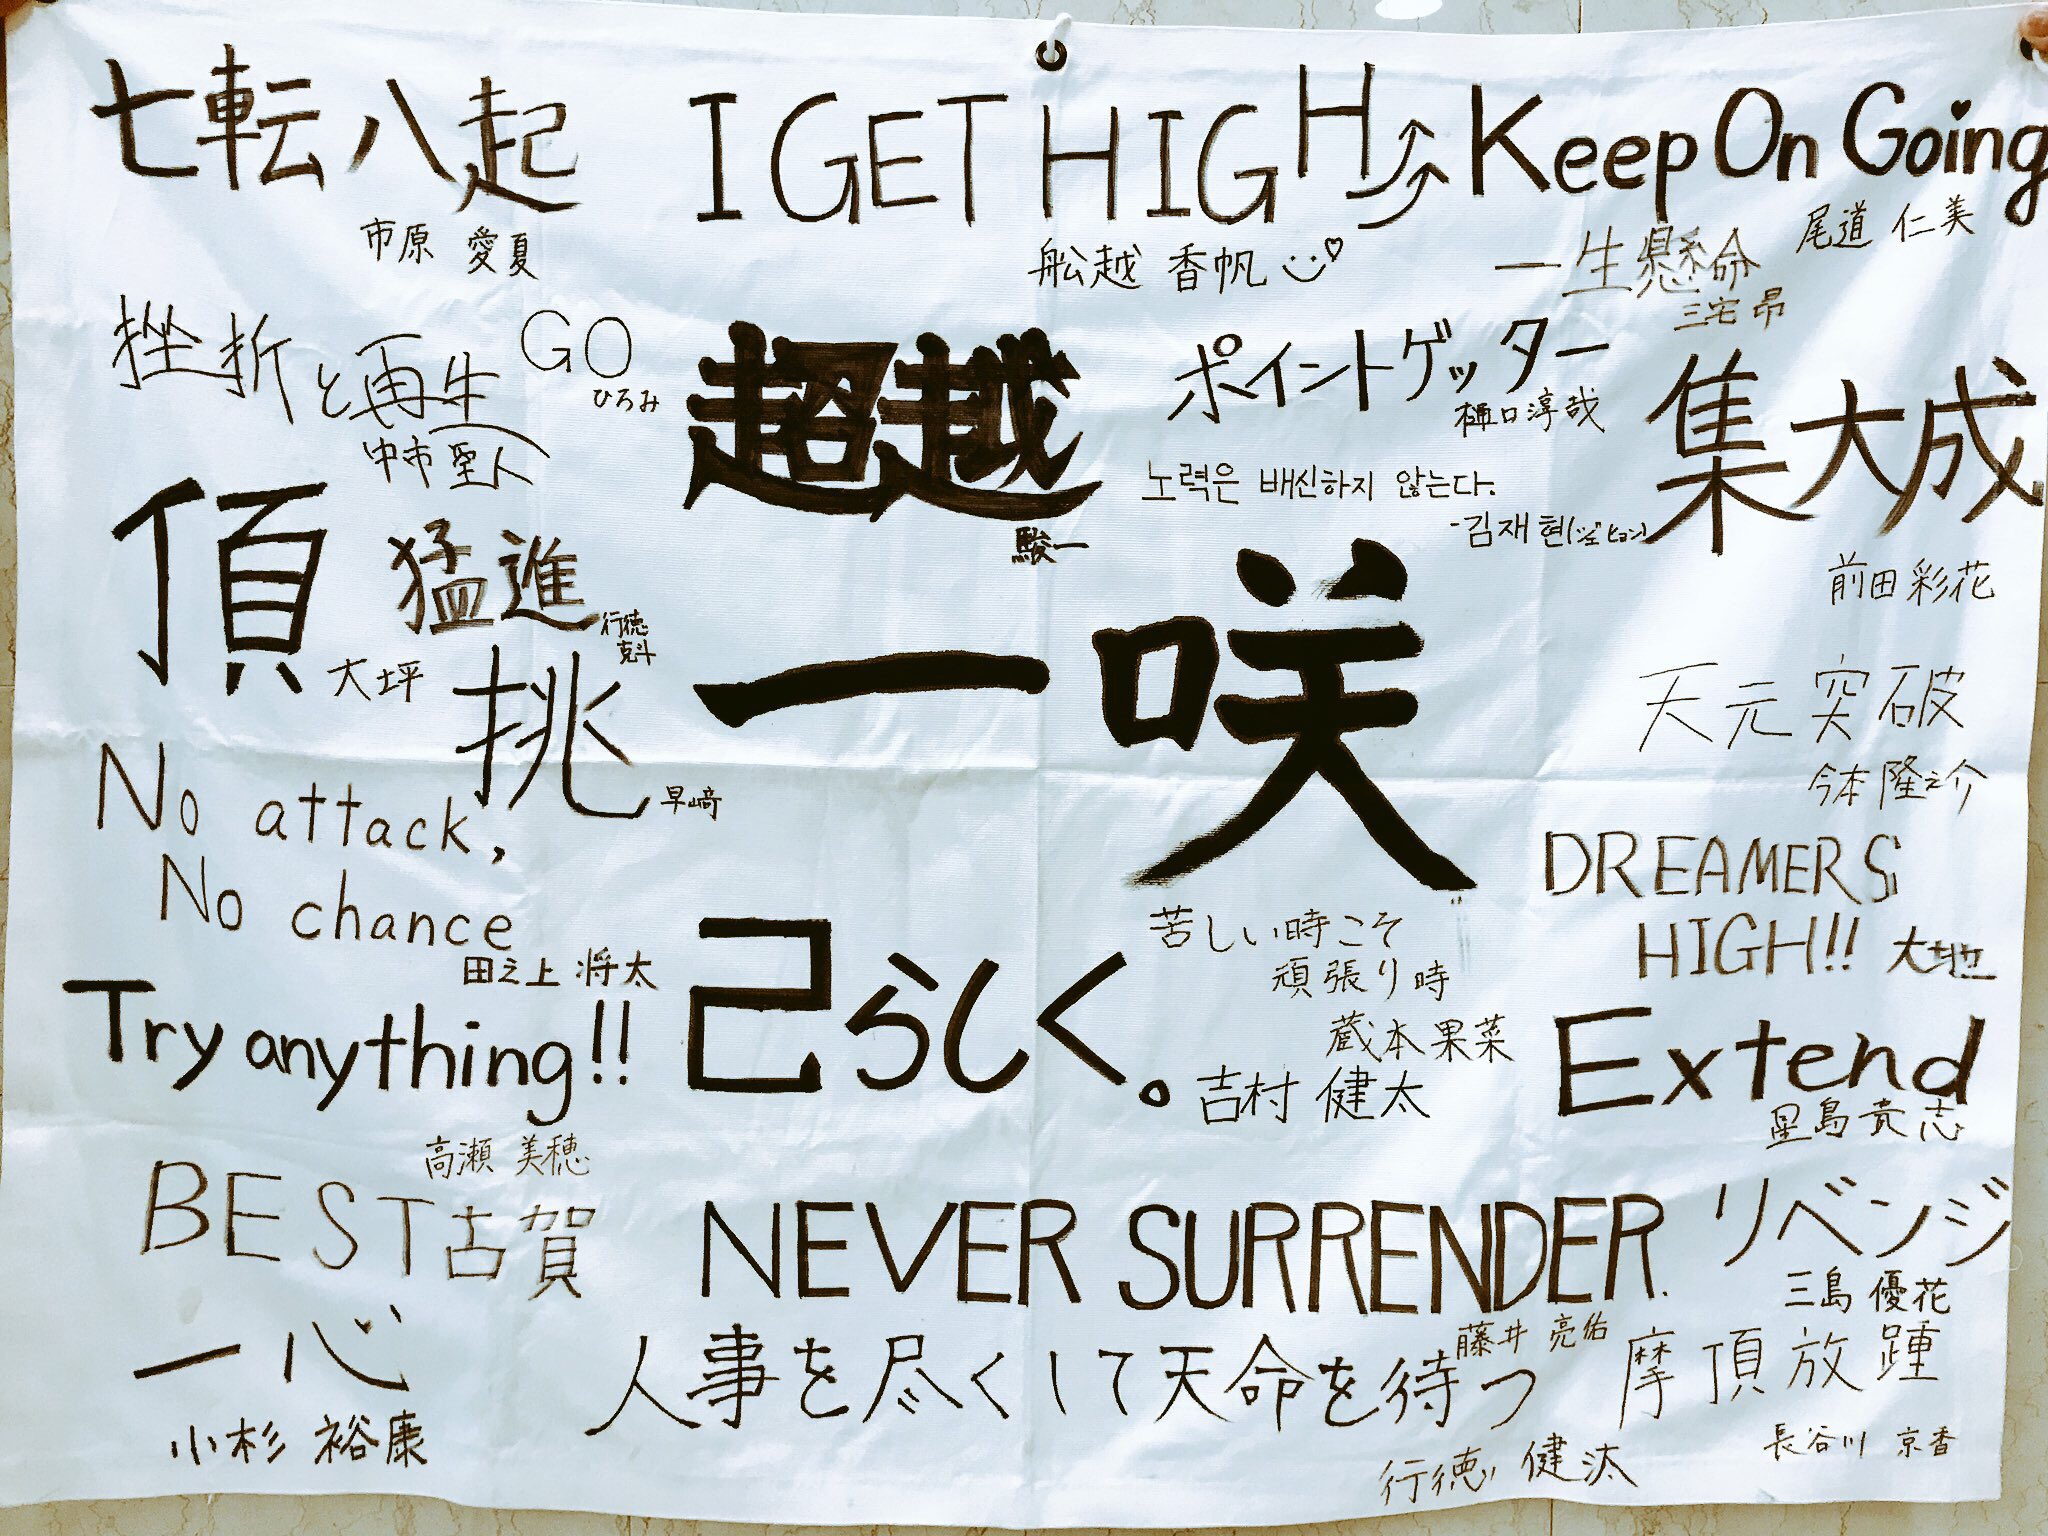 七転八起
市原 愛夏
I GET HIGH
舩越 香帆
Keep On Going
尾道 仁美
一生懸命
三宅 昂
挫折と再生
中市 聖人
GO
ひろみ
超越
駿一
ポイントゲッター
樋口淳哉
노력은 배신하지 않는다.
-김재현(ジェヒョン)
集大成
前田 彩花
頂
大坪
猛進
行徳
克斗
挑
早﨑
一咲
天元突破
今本 隆之介
No attack,
No chance
田之上 将太
DREAMERS
HIGH!! 大地
苦しい時こそ
頑張り時
蔵本果菜
己らしく。
吉村 健太
Try anything!!
高瀬 美穂
Extend
星島 貴志
BEST 古賀
NEVER SURRENDER.
藤井 亮佑
リベンジ
三島 優花
一心
小杉 裕康
人事を尽くして天命を待つ
行徳 健汰
摩頂放踵
長谷川 京香